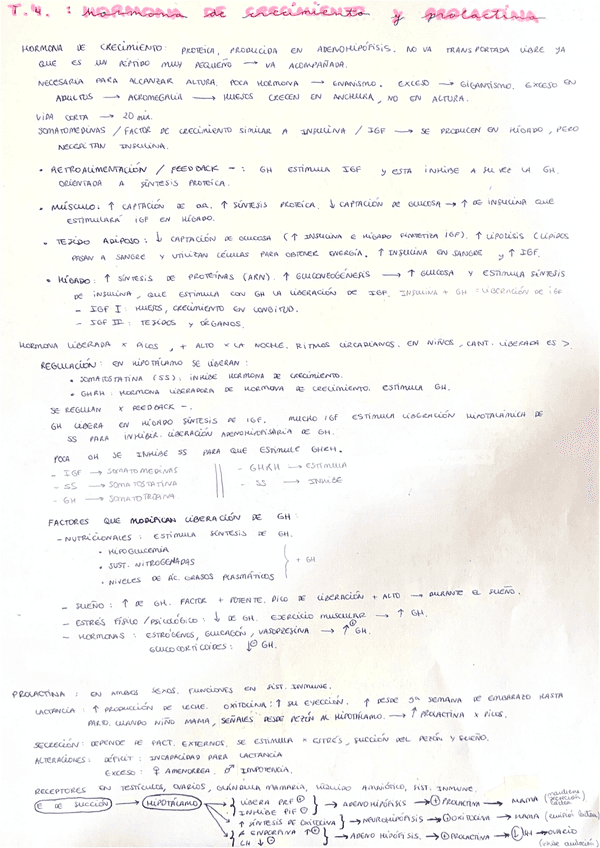 T.4. : Hormona de crecimiento y prolactina
HORMONA DE CRECIMIENTO: PROTEICA, PRODUCIDA EN ADENOHIPÓFISIS. NO VA TRANSPORTADA LIBRE YA
QUE ES UN PÉPTIDO MUY PEQUEÑO → VA ACOMPAÑADA.
NECESARIA PARA ALCANZAR ALTURA. POCA HORMONA → ENANISMO. EXCESO → GIGANTISMO. EXCESO EN
ADULTOS → ACROMEGALIA → HUESOS CRECEN EN ANCHURA, NO EN ALTURA.
VIDA CORTA → 20 min.
SOMATOMEDINAS / FACTOR DE CRECIMIENTO SIMILAR A INSULINA / IGF → SE PRODUCEN EN HÍGADO, PERO
NECESITAN INSULINA.
• RETROALIMENTACIÓN / FEEDBACK - : GH ESTIMULA IGF Y ESTA INHIBE A SU VEZ LA GH.
ORIENTADA A SÍNTESIS PROTEICA.
• MÚSCULO: ↑ CAPTACIÓN DE aa. ↑ SÍNTESIS PROTEICA. ↓ CAPTACIÓN DE GLUCOSA → ↑ DE INSULINA QUE
ESTIMULARÁ IGF EN HÍGADO.
• TEJIDO ADIPOSO: ↓ CAPTACIÓN DE GLUCOSA (↑ INSULINA E HÍGADO SINTETIZA IGF). ↑ LIPÓLISIS (LÍPIDOS
PASAN A SANGRE Y UTILIZAN CÉLULAS PARA OBTENER ENERGÍA. ↑ INSULINA EN SANGRE Y ↑ IGF.
• HÍGADO: ↑ SÍNTESIS DE PROTEÍNAS (ARN). ↑ GLUCONEOGÉNESIS → ↑ GLUCOSA Y ESTIMULA SÍNTESIS
DE INSULINA, QUE ESTIMULA CON GH LA LIBERACIÓN DE IGF. INSULINA + GH = LIBERACIÓN DE IGF
- IGF I : HUESOS, CRECIMIENTO EN LONGITUD.
- IGF II : TEJIDOS Y ÓRGANOS.
HORMONA LIBERADA X PICOS, + ALTO X LA NOCHE. RITMOS CIRCADIANOS. EN NIÑOS, CANT. LIBERADA ES >.
REGULACIÓN: EN HIPOTÁLAMO SE LIBERAN:
• SOMATOSTATINA (SS): INHIBE HORMONA DE CRECIMIENTO.
• GHRH: HORMONA LIBERADORA DE HORMONA DE CRECIMIENTO. ESTIMULA GH.
SE REGULAN X FEEDBACK -.
GH LIBERA EN HÍGADO SÍNTESIS DE IGF. MUCHO IGF ESTIMULA LIBERACIÓN HIPOTALÁMICA DE
SS PARA INHIBIR LIBERACIÓN ADENOHIPOFISARIA DE GH.
POCA GH SE INHIBE SS PARA QUE ESTIMULE GHRH.
- IGF → SOMATOMEDINAS
- SS → SOMATOSTATINA
- GH → SOMATOTROPINA
- GHRH → ESTIMULA
- SS → INHIBE
FACTORES QUE MODIFICAN LIBERACIÓN DE GH:
- NUTRICIONALES: ESTIMULA SÍNTESIS DE GH.
• HIPOGLUCEMIA
• SUST. NITROGENADAS
• NIVELES DE ÁC. GRASOS PLASMÁTICOS
+ GH
- SUEÑO: ↑ DE GH. FACTOR + POTENTE. PICO DE LIBERACIÓN + ALTO → DURANTE EL SUEÑO.
- ESTRÉS FÍSICO / PSICOLÓGICO: ↓ DE GH. EJERCICIO MUSCULAR → ↑ GH.
- HORMONAS: ESTRÓGENOS, GLUCAGÓN, VASOPRESINA → ↑⊕ GH.
GLUCOCORTICOIDES: ↓⊖ GH.
PROLACTINA: EN AMBOS SEXOS. FUNCIONES EN SIST. INMUNE.
LACTANCIA: ↑ PRODUCCIÓN DE LECHE. OXITOCINA: ↑ SU EYECCIÓN. ↑ DESDE 5ª SEMANA DE EMBARAZO HASTA
PARTO. CUANDO NIÑO MAMA, SEÑALES DESDE PEZÓN AL HIPOTÁLAMO. → ↑ PROLACTINA X PICOS.
SECRECIÓN: DEPENDE DE FACT. EXTERNOS. SE ESTIMULA X ESTRÉS, SUCCIÓN DEL PEZÓN Y SUEÑO.
ALTERACIONES: DÉFICIT: INCAPACIDAD PARA LACTANCIA
EXCESO: ♀ AMENORREA. ♂ IMPOTENCIA.
RECEPTORES EN TESTÍCULOS, OVARIOS, GLÁNDULA MAMARIA, LÍQUIDO AMNIÓTICO, SIST. INMUNE.
E DE SUCCIÓN → HIPOTÁLAMO → LIBERA PRF ⊕ INHIBE PIF ⊖ → ADENOHIPÓFISIS → ⊕ PROLACTINA → MAMA (mantiene secreción láctea)
↑ SÍNTESIS DE OXITOCINA → NEUROHIPÓFISIS → ⊕ OXITOCINA → MAMA
ENDORFINA ↑⊕ LH ↓⊖ → ADENO HIPÓFISIS. → ⊕ PROLACTINA → LH → OVARIO
(inhibe ovulación)